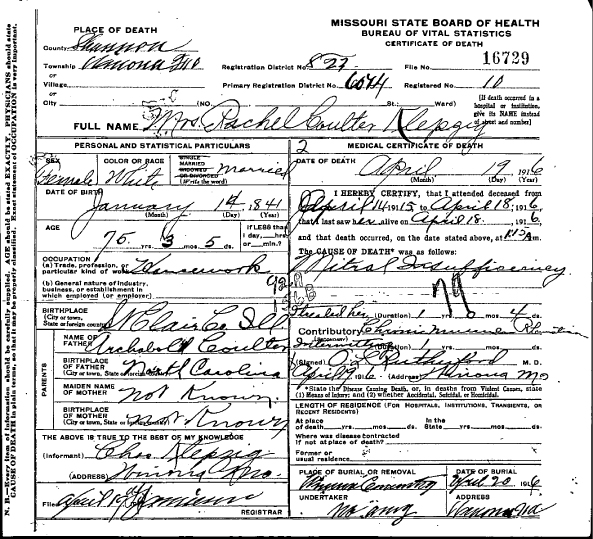 MISSOURI STATE BOARD OF HEALTH
BUREAU OF VITAL STATISTICS
CERTIFICATE OF DEATH
PLACE OF DEATH
County Shannon
Township
or
Village
or
City (NO. St.; Ward)
Registration District No. 827
File No. 16729
Primary Registration District No. 6074
Registered No. 10
[If death occurred in a hospital or institution, give its NAME instead of street and number]
FULL NAME Mrs. Rachel Coulter Klepzig
PERSONAL AND STATISTICAL PARTICULARS
SEX Female
COLOR OR RACE White
SINGLE MARRIED WIDOWED OR DIVORCED (Write the word) Married
DATE OF BIRTH January 14 1841
(Month) (Day) (Year)
AGE 75 yrs. 3 mos. 5 ds.
If LESS than 1 day, hrs. or min.?
OCCUPATION
(a) Trade, profession, or particular kind of work Housework
(b) General nature of industry, business, or establishment in which employed (or employer)
BIRTHPLACE
(City or town, State or foreign country) St Clair Co Ill
PARENTS
NAME OF FATHER Archabold Coulter
BIRTHPLACE OF FATHER
(City or town, State or foreign country) North Carolina
MAIDEN NAME OF MOTHER Not Known
BIRTHPLACE OF MOTHER
(City or town, State or foreign country) Not Known
THE ABOVE IS TRUE TO THE BEST OF MY KNOWLEDGE
(Informant) Chas Klepzig
(ADDRESS) Winona Mo.
Filed April 19
REGISTRAR
MEDICAL CERTIFICATE OF DEATH
DATE OF DEATH April 19 1916
(Month) (Day) (Year)
I HEREBY CERTIFY, that I attended deceased from
April 14 1915, to April 18, 1916,
that I last saw her alive on April 18, 1916,
and that death occurred, on the date stated above, at m.
The CAUSE OF DEATH* was as follows:
Mitral Insufficiency
treated her (Duration) 1 yrs. 0 mos. 4 ds.
Contributory Chronic
(SECONDARY) (Duration) 1 yrs. mos. ds.
(Signed) Rutherford M. D.
April 19 1916 (Address) Winona Mo
*State the Disease Causing Death, or, in deaths from Violent Causes, state (1) Means of Injury; and (2) whether Accidental, Suicidal, or Homicidal.
LENGTH OF RESIDENCE (FOR HOSPITALS, INSTITUTIONS, TRANSIENTS, OR RECENT RESIDENTS)
At place of death yrs. mos. ds. In the State yrs. mos. ds.
Where was disease contracted
if not at place of death?
Former or usual residence
PLACE OF BURIAL OR REMOVAL
DATE OF BURIAL April 20 1916
UNDERTAKER
ADDRESS
N. B.—Every item of information should be carefully supplied. AGE should be stated EXACTLY. PHYSICIANS should state CAUSE OF DEATH in plain terms, so that it may be properly classified. Exact statement of OCCUPATION is very important.